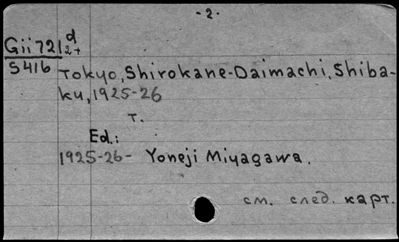 - 2. -
Gii 721 d/2+
S416
Tokyo, Shirokane-Daimachi, Shiba-
ku, 1925-26
T.
Ed.:
1925-26- Yoneji Miyagawa.
см. след. карт.